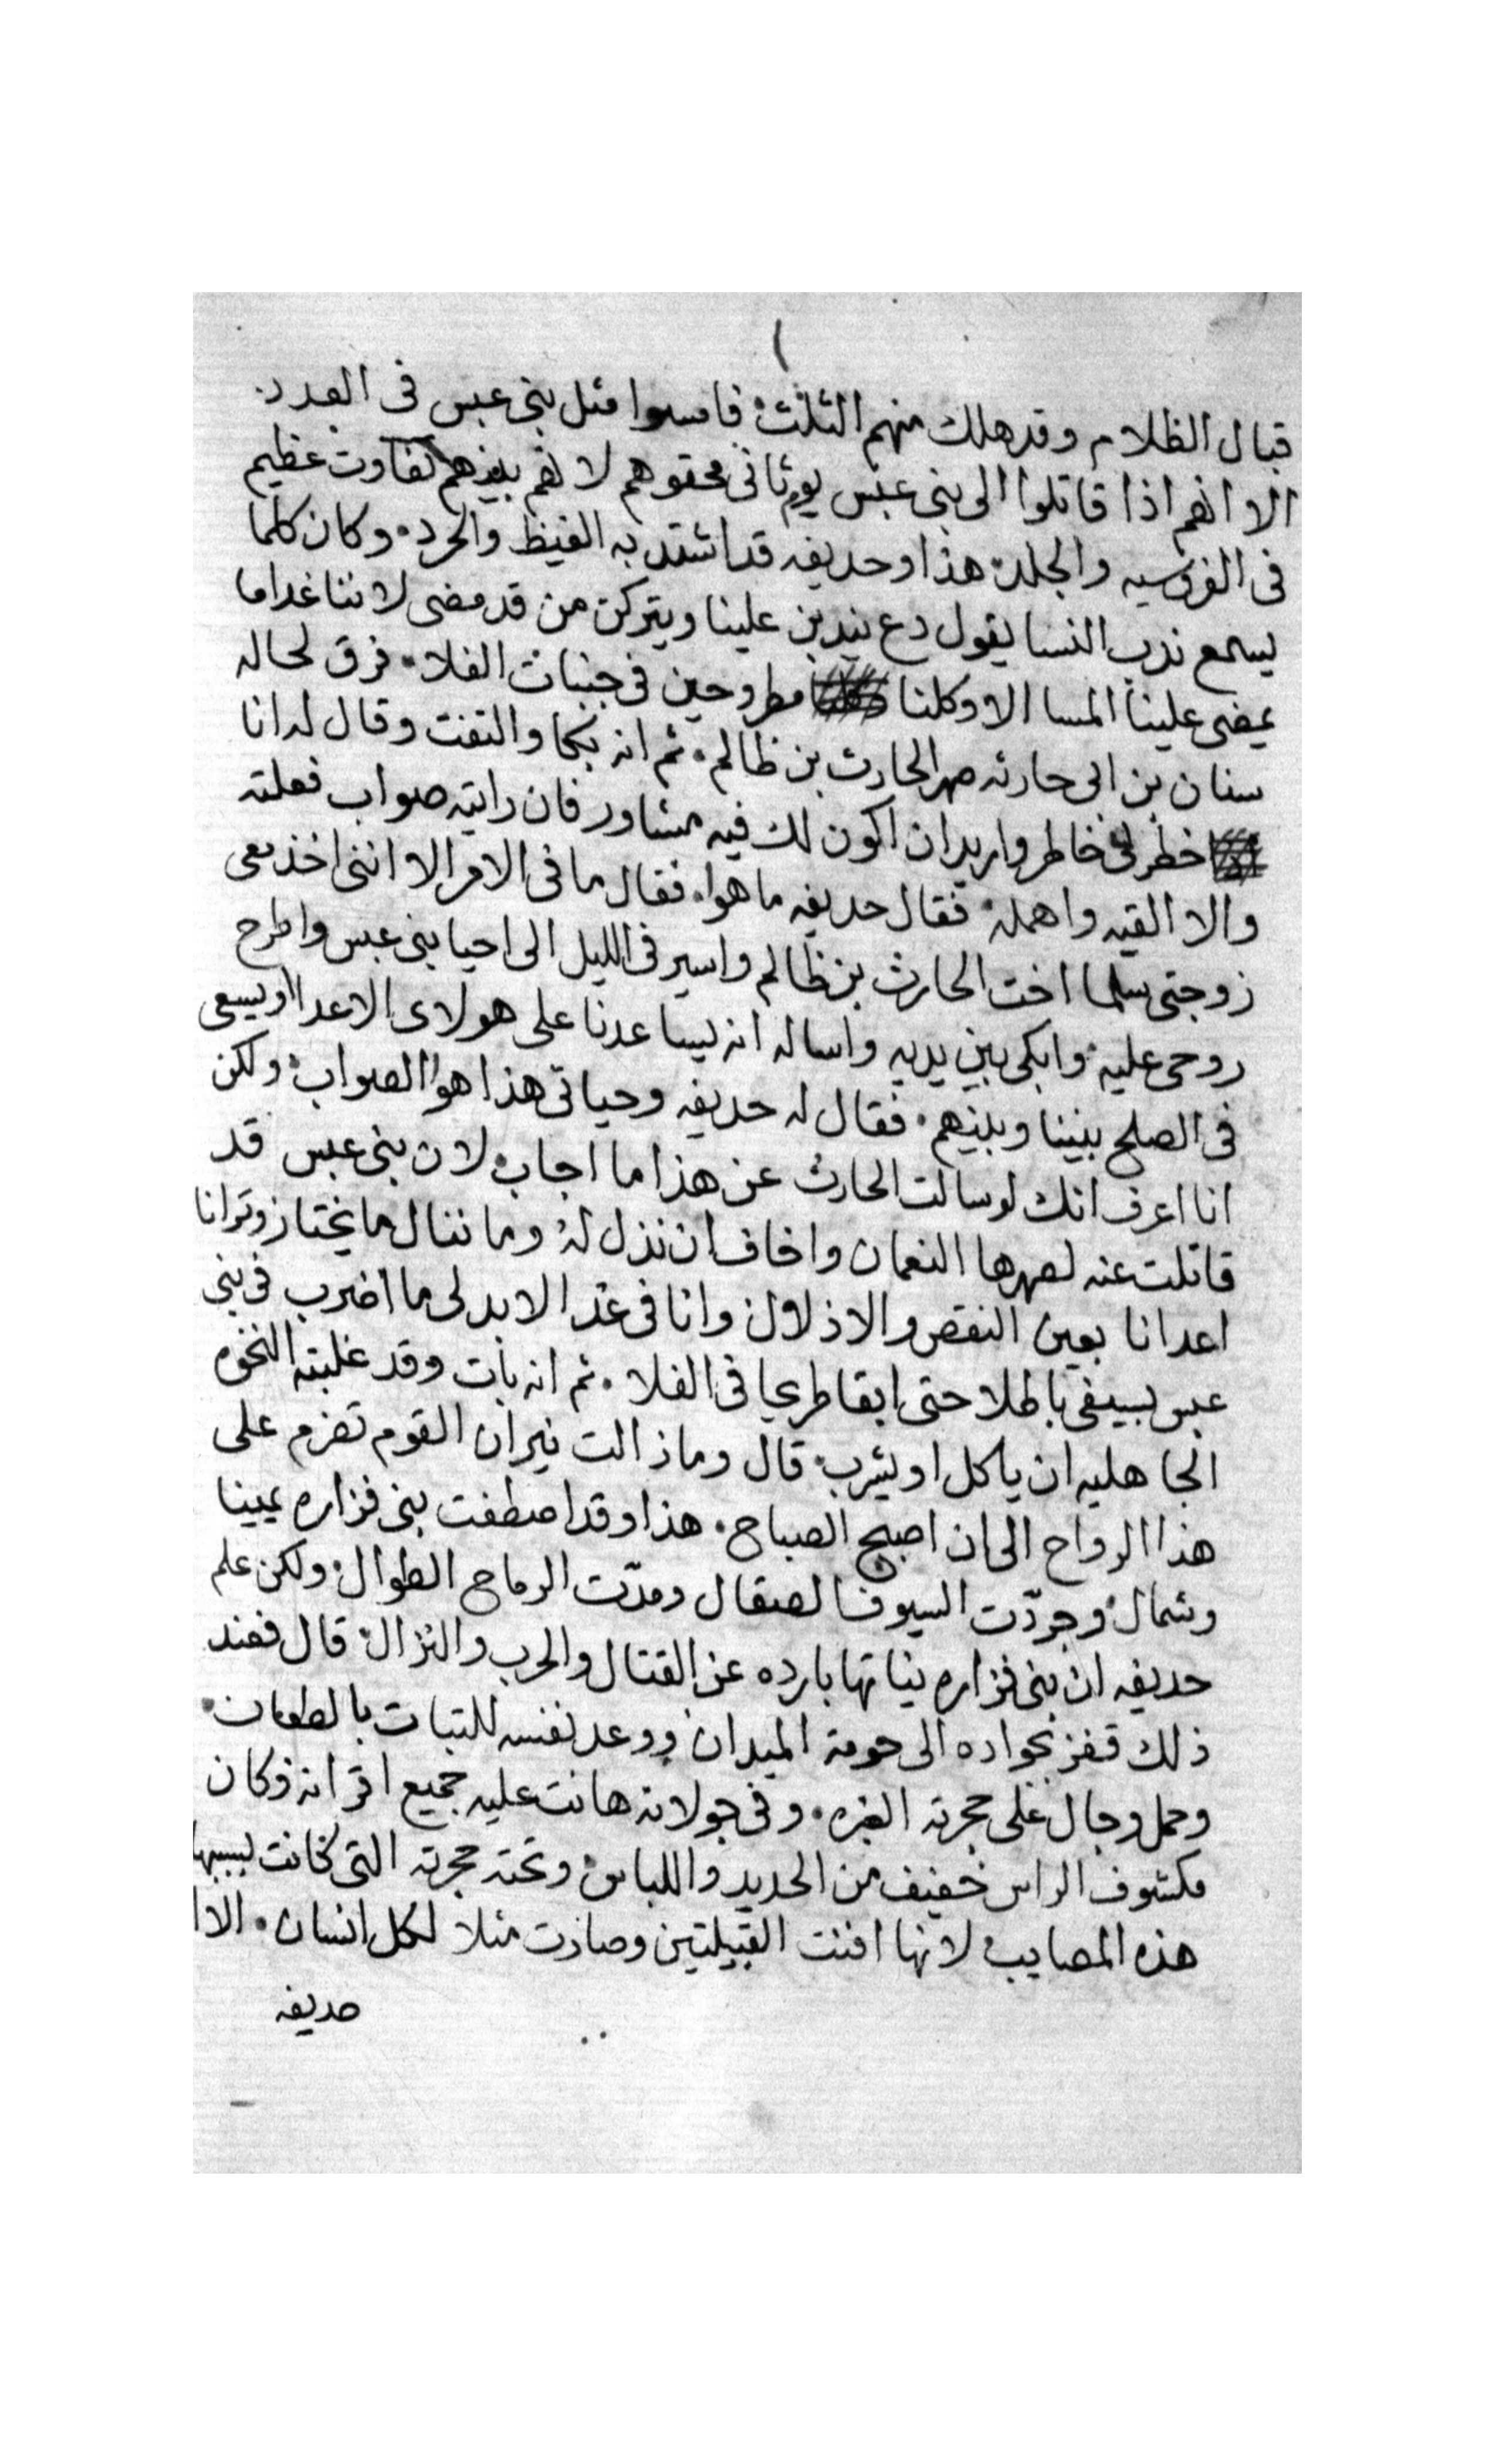 ١
قبال الظلام وقد هلك منهم الثلث فامسوا مثل بنى عبس فى العدد
الا انهم اذا قاتلوا الى بنى عبس يوم ثانى محقوهم لانهم بينهم تفاوت عظيم
فى الفروسيه والجلد هذا وحديفه قد اشتد به الغيظ والحرد وكان كلما
يسمع ندب النسا يقول دع يندبن علينا ويتركن من قد مضى لاننا غدا ما
يمضى علينا المسا الا وكلنا مطروحين فى جنبات الفلا فرق لحاله
سنان بن ابى حارثه صهر الحارث بن ظالم ثم انه بكا والتفت وقال له انا
خطر لى خاطر واريد ان اكون لك فيه مشاور فان رايته صواب فعلته
والا القيه واهمله فقال حديفه ما هوا فقال ما فى الامر الا اننى اخذ معى
زوجتى سلما اخت الحارث بن ظالم واسير فى الليل الى احيا بنى عبس واطرح
روحى عليه وابكى بين يديه واساله انه يساعدنا على هولاى الاعدا او يسعى
فى الصلح بيننا وبينهم فقال له حديفه وحياتى هذا هو الصواب ولكن
انا اعرف انك لو سالت الحارث عن هذا ما اجاب لان بنى عبس قد
قاتلت عنه لصهرها النعمان واخاف ان نذل له وما ننال ما نختار وترانا
اعدانا بعين النقص والاذلال وانا فى غدا لابد لى ما اضرب فى بنى
عبس بسيفى باطلا حتى ابقا طريحا فى الفلا ثم انه بات وقد غلبته النخوه
الجاهليه ان ياكل او يشرب قال وما زالت نيران القوم تضرم على
هذا الرواح الى ان اصبح الصباح هذا وقد اصطفت بنى فزاره يمينا
وشمال وجردّت السيوف الصقال ومدّت الرماح الطوال ولكن علم
حديفه ان بنى فزاره نياتها بارده عن القتال والحرب والنزال قال فعند
ذلك قفز بجواده الى حومة الميدان ووعد نفسه للتبات بالطعان
وحمل وجال على حجرته الغبره وفى جولانه هانت عليه جميع اقرانه وكان
مكشوف الراس خفيف من الحديد واللباس وتحته حجرته التى كانت لسببها
هذه المصايب لانها افنت القبيلتين وصارت مثلا لكل انسان الا ا
حديفه